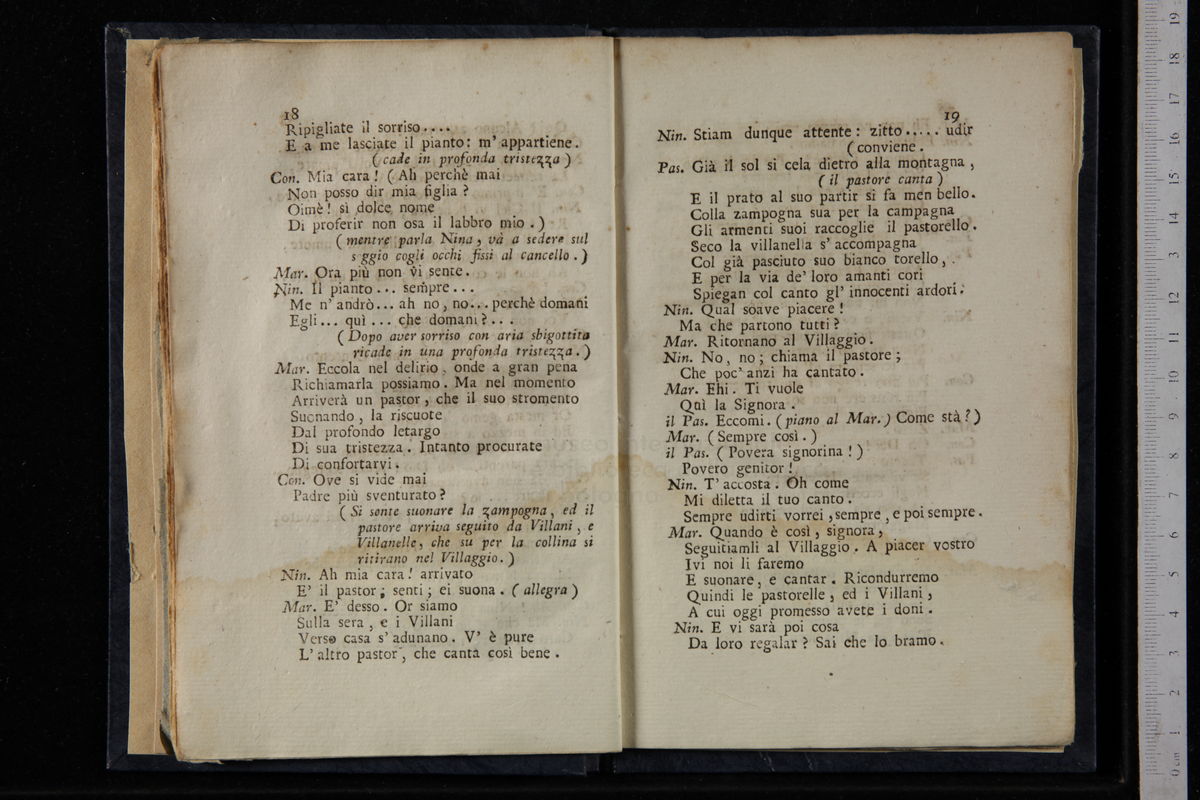 18
Ripigliate il sorriso....
E a me lasciate il pianto: m' appartiene.
(cade in profonda tristezza)
Con. Mia cara! (Ah perchè mai
Non posso dir mia figlia?
Oimè! sì dolce nome
Di proferir non osa il labbro mio.)
(mentre parla Nina, và a sedere sul
s ggio cogli occhi fissi al cancello.)
Mar. Ora più non vi sente.
Nin. Il pianto... sempre...
Me n' andrò... ah no, no... perchè domani
Egli... quì... che domani?...
(Dopo aver sorriso con aria sbigottita
ricade in una profonda tristezza.)
Mar. Eccola nel delirio, onde a gran pena
Richiamarla possiamo. Ma nel momento
Arriverà un pastor, che il suo stromento
Suonando, la riscuote
Dal profondo letargo
Di sua tristezza. Intanto procurate
Di confortarvi.
Con. Ove si vide mai
Padre più sventurato?
(Si sente suonare la zampogna, ed il
pastore arriva seguito da Villani, e
Villanelle, che su per la collina si
ritirano nel Villaggio.)
Nin. Ah mia cara! arrivato
E' il pastor; senti; ei suona. (allegra)
Mar. E' desso. Or siamo
Sulla sera, e i Villani
Verso casa s' adunano. V' è pure
L' altro pastor, che canta così bene.
19
Nin. Stiam dunque attente: zitto..... udir
(conviene.
Pas. Già il sol si cela dietro alla montagna,
(il pastore canta)
E il prato al suo partir si fa men bello.
Colla zampogna sua per la campagna
Gli armenti suoi raccoglie il pastorello.
Seco la villanella s' accompagna
Col già pasciuto suo bianco torello,
E per la via de' loro amanti cori
Spiegan col canto gl' innocenti ardori.
Nin. Qual soave piacere!
Ma che partono tutti?
Mar. Ritornano al Villaggio.
Nin. No, no; chiama il pastore;
Che poc' anzi ha cantato.
Mar. Ehi. Ti vuole
Quì la Signora.
il Pas. Eccomi. (piano al Mar.) Come stà?)
Mar. (Sempre così.)
il Pas. (Povera signorina!)
Povero genitor!
Nin. T' accosta. Oh come
Mi diletta il tuo canto.
Sempre udirti vorrei, sempre, e poi sempre.
Mar. Quando è così, signora,
Seguitiamli al Villaggio. A piacer vostro
Ivi noi li faremo
E suonare, e cantar. Ricondurremo
Quindi le pastorelle, ed i Villani,
A cui oggi promesso avete i doni.
Nin. E vi sarà poi cosa
Da loro regalar? Sai che lo bramo.